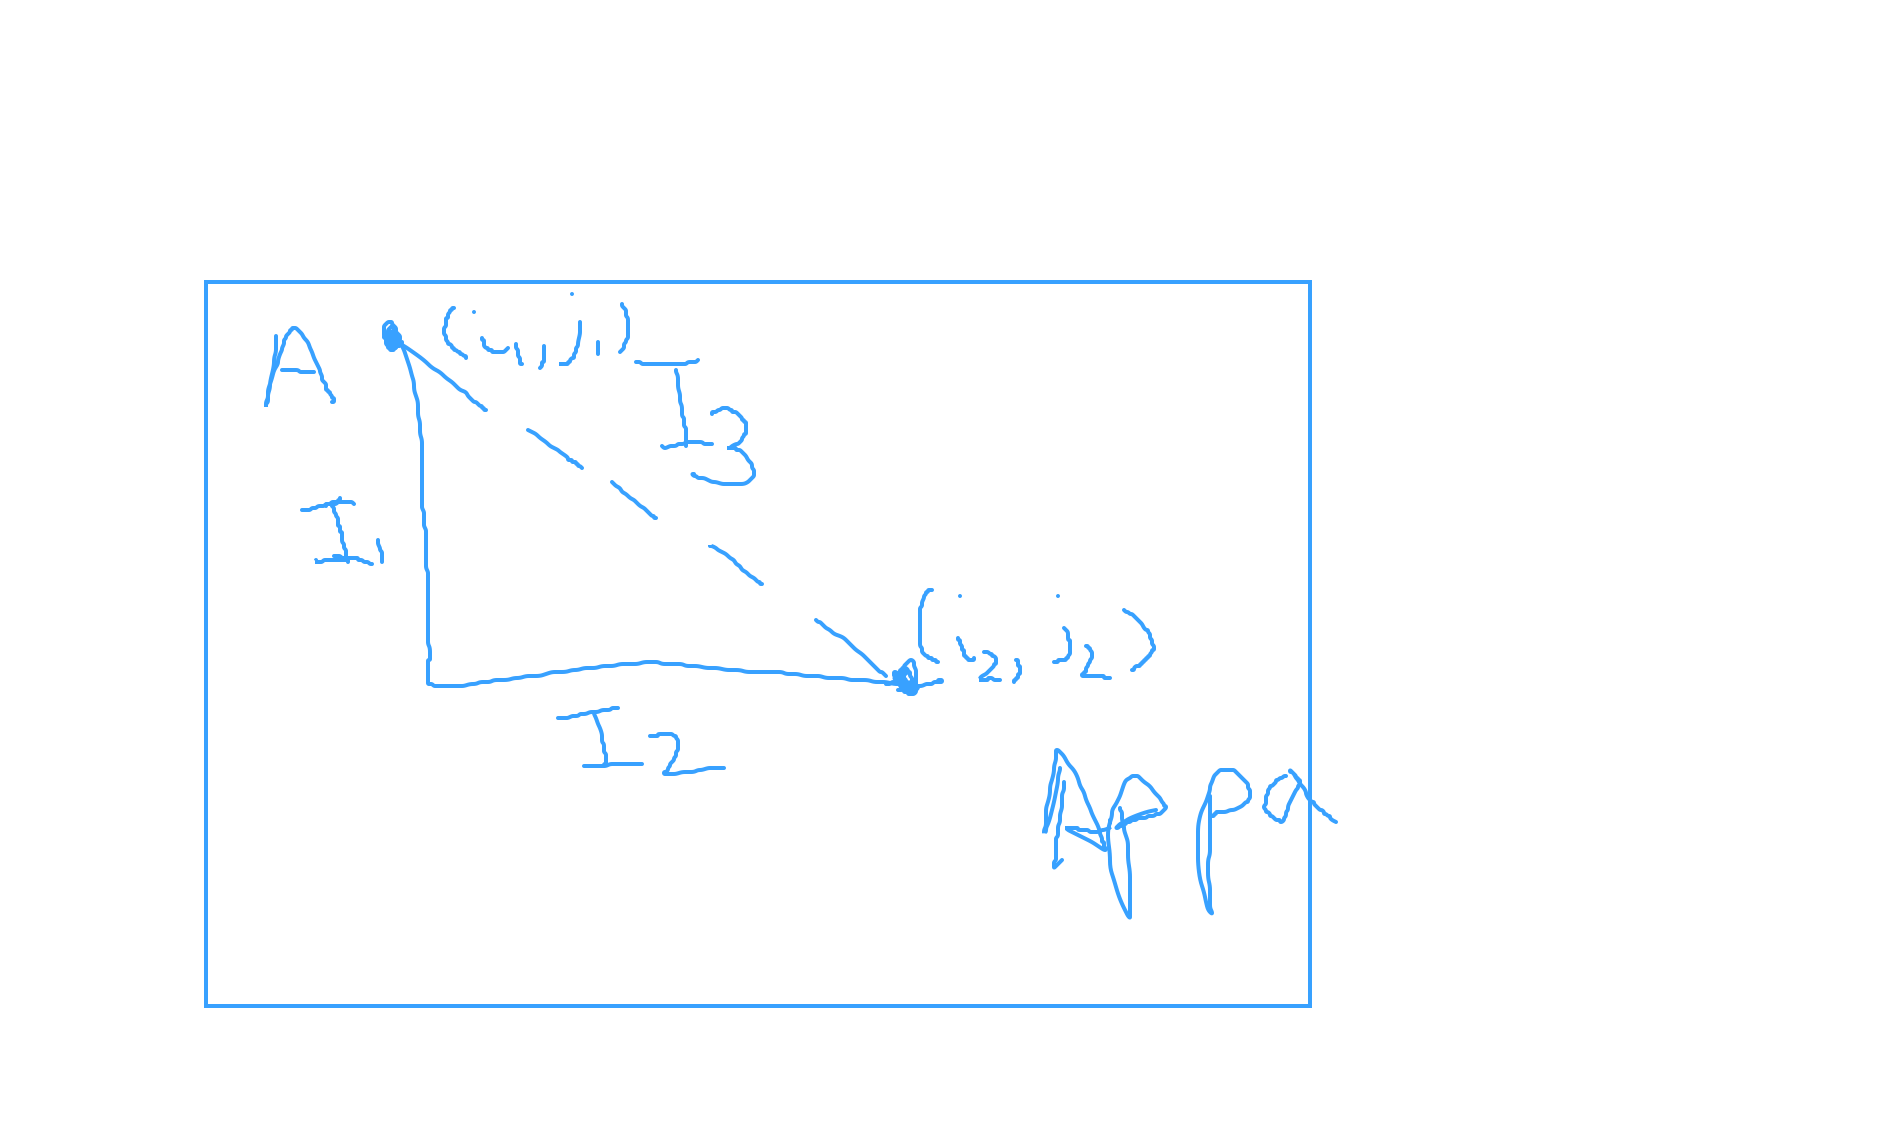 A (i₁, j₁)
I₃
I₁
(i₂, j₂)
I₂
Appa